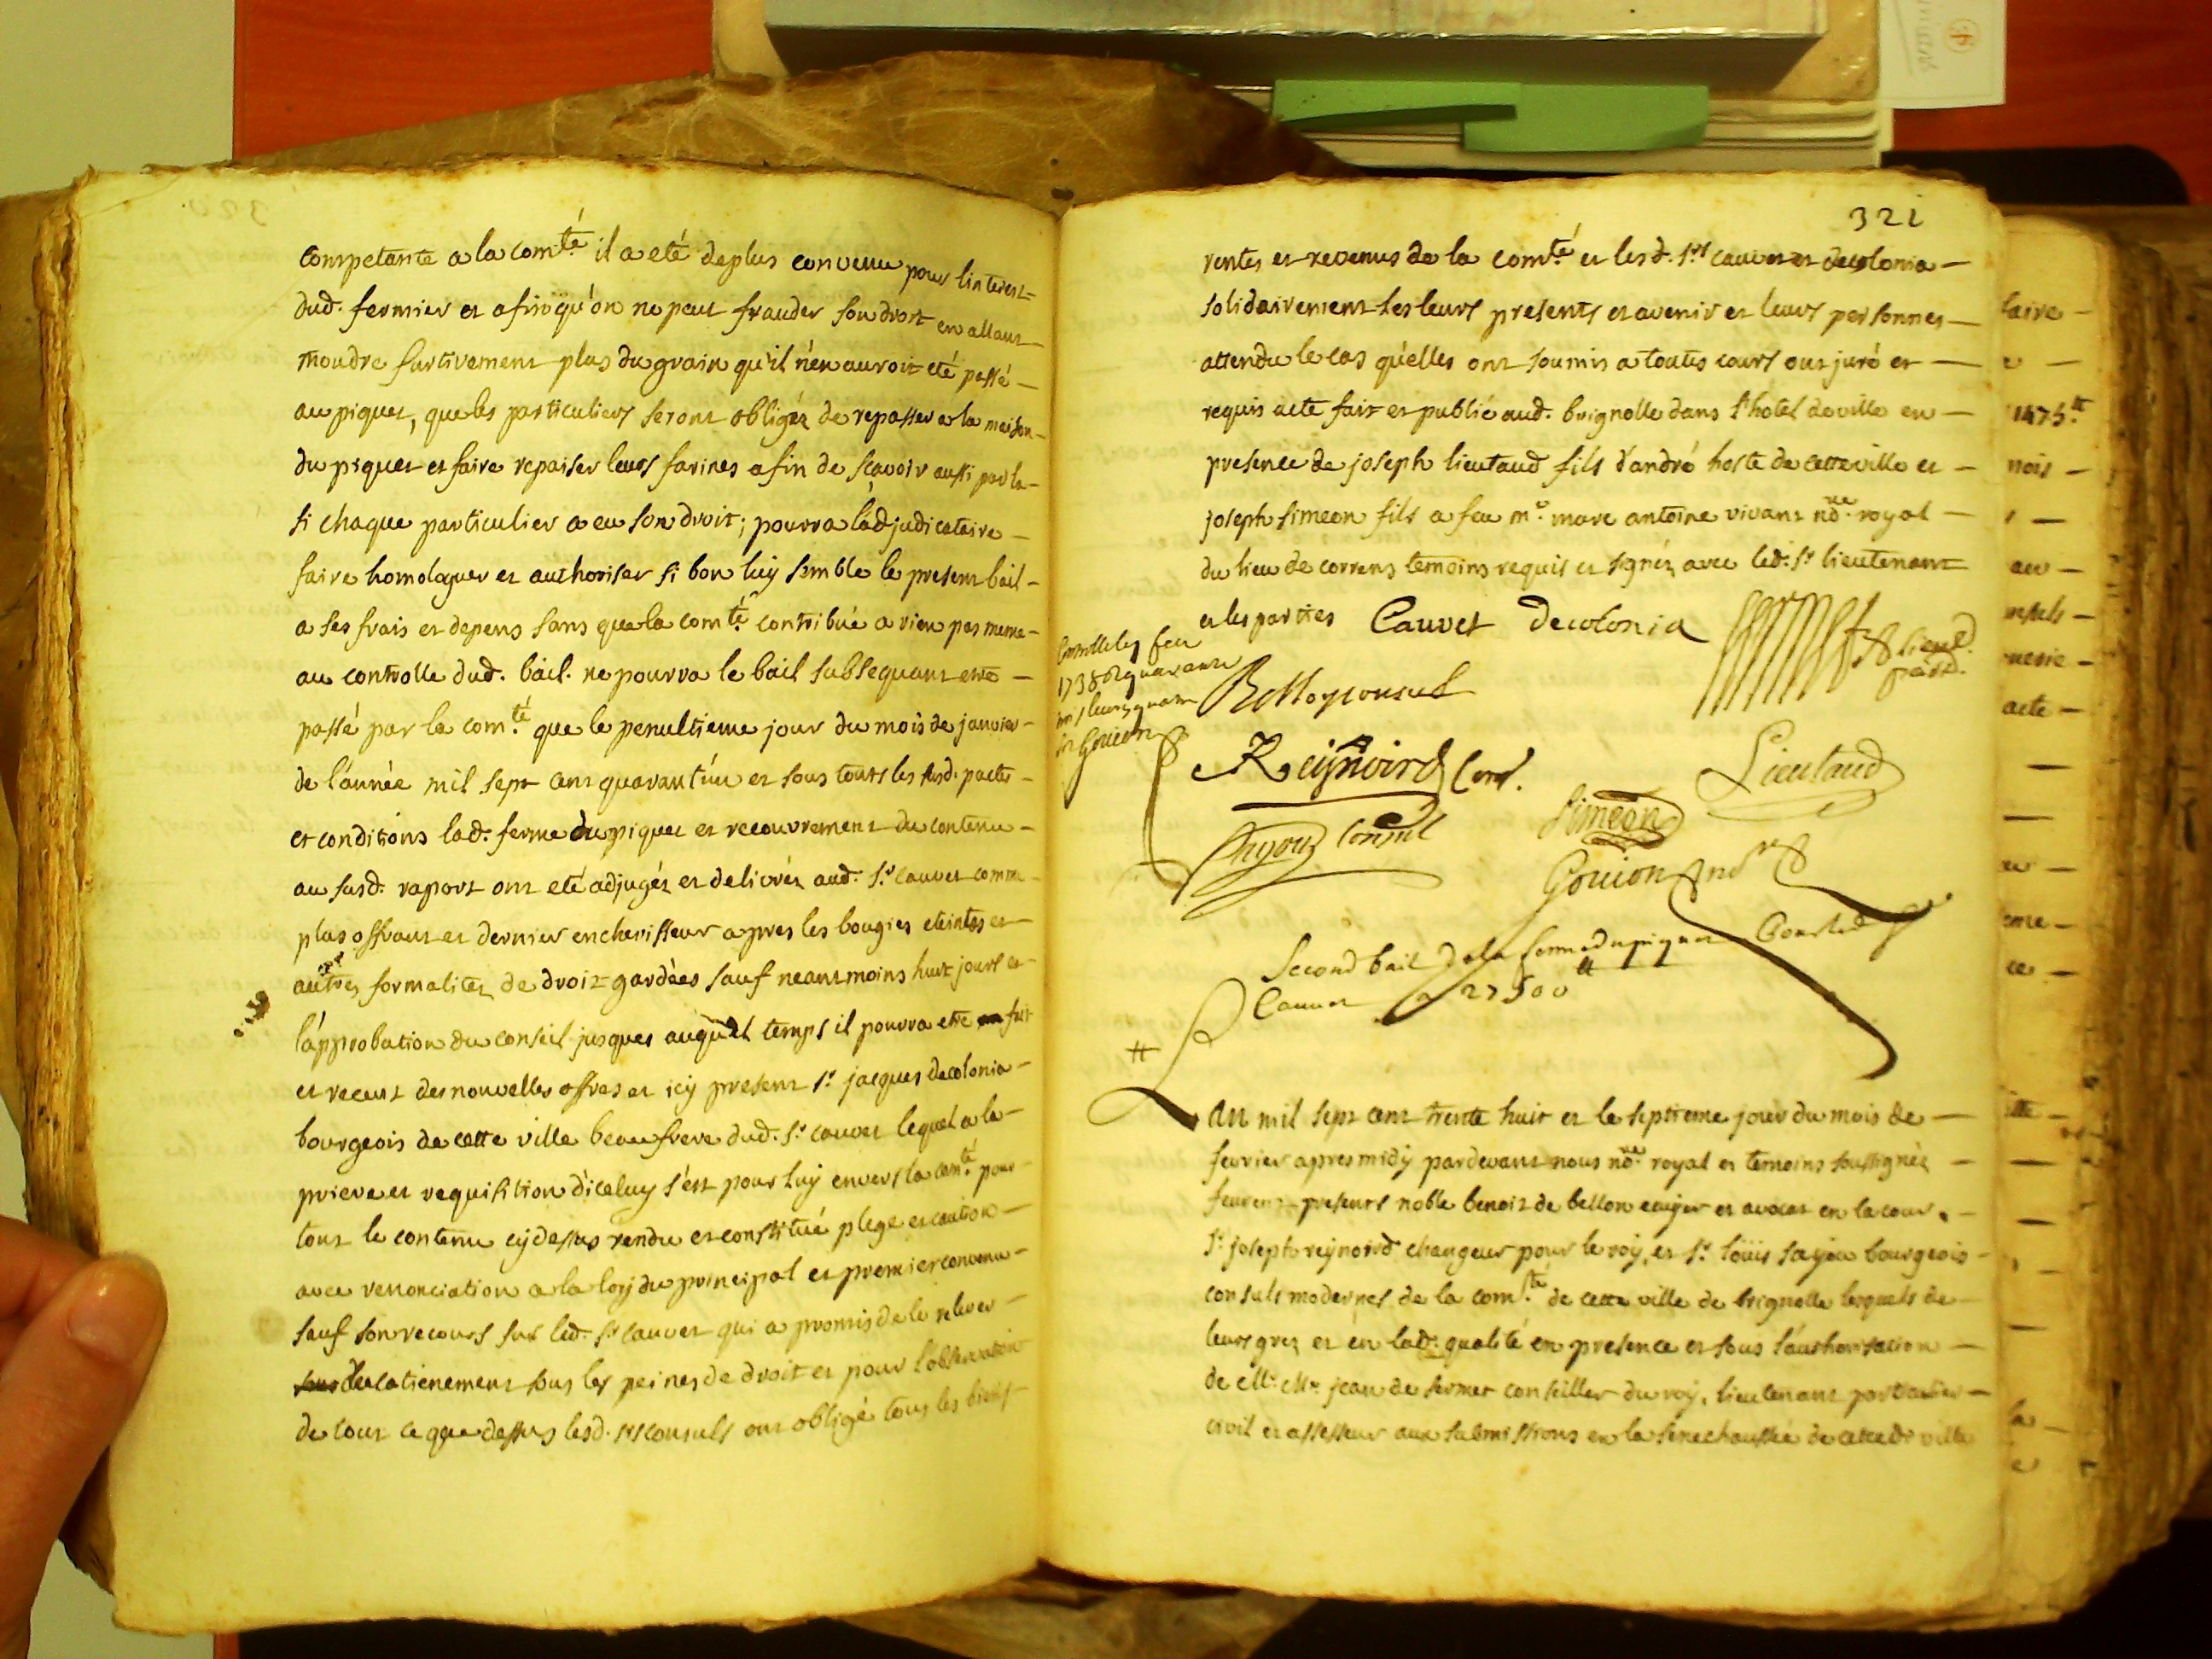 competante a la com.té il a eté deplus convenu pour linterest
dud. fermier et afin qu'on ne peut frauder son droit en allant
moudre furtivement plus du grain qu'il n'en auroit eté passé
au piquet, que les particuliers seront obligéz de repasser a la maison
du piquet et faire repaiser leurs farines afin de scavoir aussi par la
si chaque particulier a eu son droit; pourra l'adjudicataire
faire homologuer et authoriser si bon luy semble le present bail
a ses frais et depens sans que la com.té contribue a rien pas meme
au controlle dud. bail. ne pourra le bail subsequant etre
passé par la com.té que le penultieme jour du mois de janvier
de l'année mil sept cent quarant'un et sous touts les susd. pactes
et conditions lad. ferme du piquet et recouvrement du contenu
au susd. raport ont eté adjugéz et delivréz aud. s.r cauvet comme
plus offrant et dernier encherisseur apres les bougies eteintes et
autres formalitez de droit gardées sauf neantmoins huit jours et
l'approbation du conseil jusques auquel temps il pourra etre fait
et receut des nouvelles offres et icy present s.r jacques decolonia
bourgeois de cette ville beau frere dud. s.r cauvet lequel a la
priere et requisition diceluy s'est pour luy envers la com.té pour
tout le contenu cy dessus rendu et constitué plege et caution
avec renonciation a la loy du principal et premier convenu
sauf son recours sur led. s.r cauvet qui a promis de le relever
du cationement sous les peines de droit et pour l'observation
de tout ce que dessus lesd. srs consuls ont obligé tous les biens
321
rentes et revenus de la com.té et lesd. s.rs cauvet et decolonia
solidairement les leurs presents et avenir et leurs personnes
attendu le cas qu'elles ont soumis a toutes cours ont juré et
requis acte fait et publié aud. brignolle dans l'hotel de ville en
presence de joseph lieutaud fils d'andré hoste de cette ville et
joseph simeon fils a feu m.e marc antoine vivant no.re royal
du lieu de correns temoins requis et signéz avec led. s.r lieutenant
et les parties Cauvet Decolonia
lieut.
part.
1738
Gouion
Reynoird Cons.
Lieutaud
Simeon
consul
Gouion no.re
Second bail de la ferme du piquet
Cauvet a 27500 tt
An mil sept cent trente huit et le septieme jour du mois de
fevrier apres midy pardevant nous no.re royal et temoins soussignéz
feurent presents noble benoit de bellon ecuyer et avocat en la cour,
s.r joseph reynoird changeur pour le roy, et s.r louis sajou bourgeois
consuls modernes de la com.té de cette ville de brignolle lesquels de
leurs grez et en lad. qualité en presence et sous l'authorisation
de M.r M.re jean de fermet conseiller du roy, lieutenant particulier
civil et assesseur aux submissions en la senechaussée de cette d. ville
faire
1475 tt
nois
au
acte